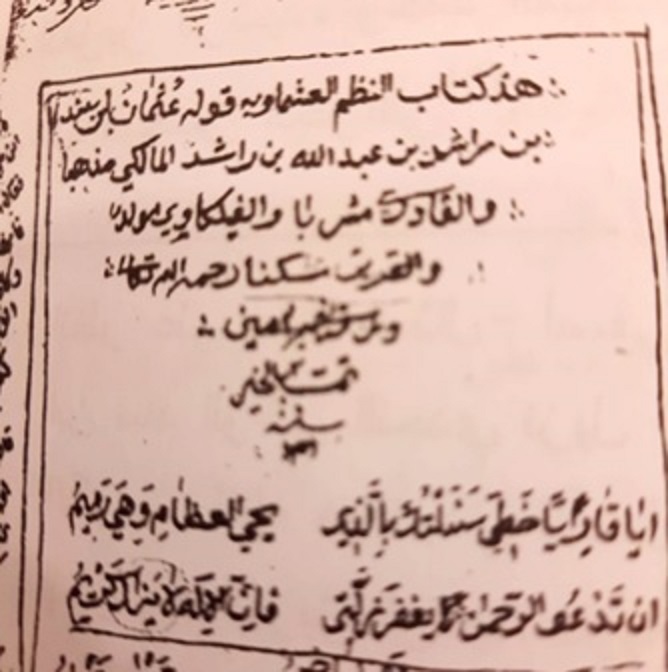 هذكتاب النظم العشماويه قوله عثمان بن سند
بن راشد بن عبد الله بن راشد المالكي مذهبا
والقادري مشربا والفيلكاوي مولدا
والقرين سكنا رحمه الله تعالى
امين
تمت بالخير
سنة
ايا قارئا خطي سئلتك بالذي يحيي العظام وهي رميم
ان تدعو الرحمن يغفر زلتي فان الله كريم